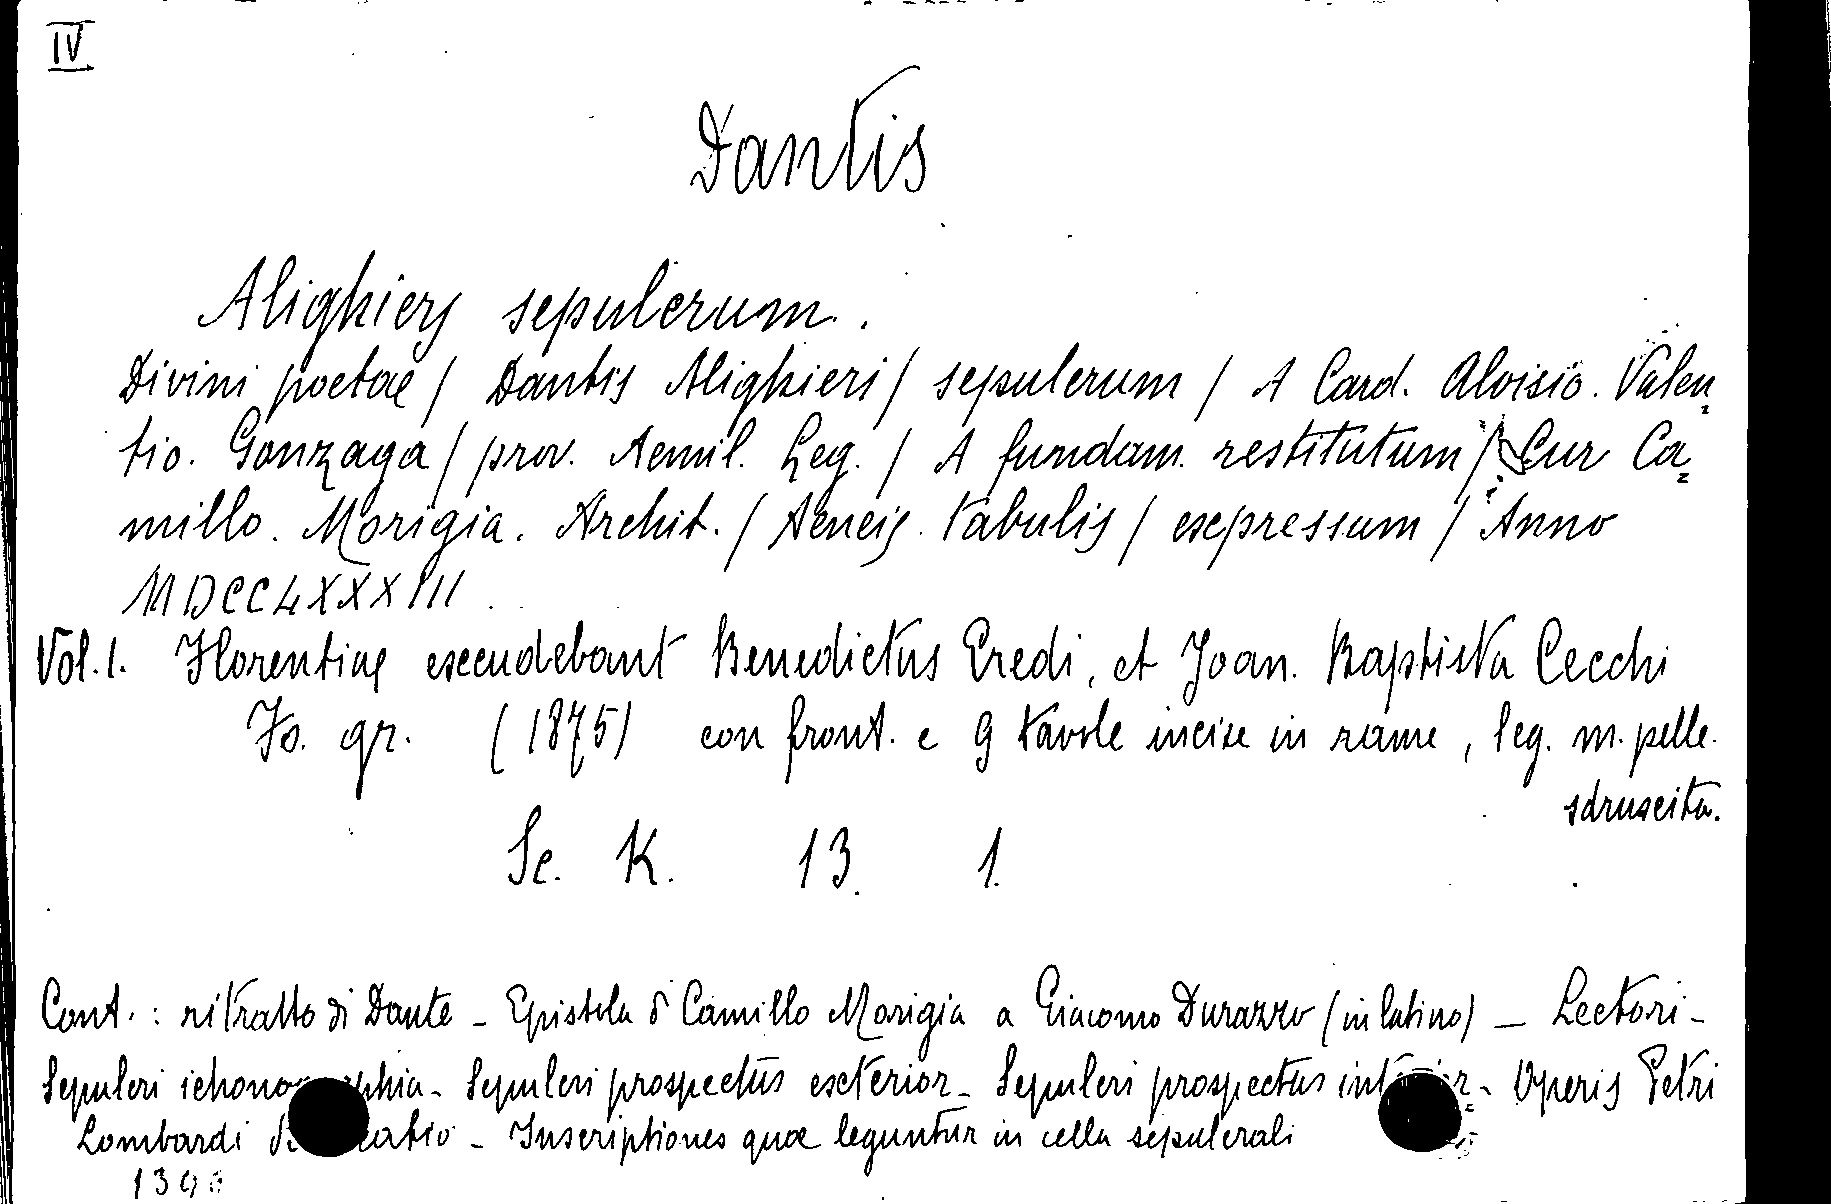 IV
Dantis
Alighiery sepulcrum.
Divini poetae / Dantis Alighieri / sepulcrum / A Card. Aloisio. Valen=
tio. Gonzaga / prov. Aemil. Leg. / A fundam. restitutum / Cur Ca=
millo. Morigia. Archit. / Aeneis. Tabulis / expressum / Anno
MDCCLXXXIII.
Vol. 1. Florentiae excudebant Benedictus Eredi, et Joan. Baptista Cecchi
Fo. gr. (1875) con front. e 9 tavole incise in rame, leg. m. pelle.
sdruscita.
Sc. K. 13. 1.
Cont. : ritratto di Dante - Epistola di Camillo Morigia a Giacomo Durazzo (in latino) - Lectori -
Sepulcri - Sepulcri prospectus exterior - Sepulcri prospectus - Operis Petri
Lombardi - Inscriptiones quae leguntur in cella sepulcrali